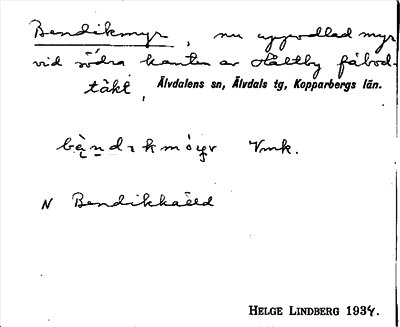 Bendikmyr, nu uppodlad myr
vid södra kanten av Åltby fäbod-
täkt, Älvdalens sn, Älvdals tg, Kopparbergs län.
Vmk.
N Bendikkäeld
HELGE LINDBERG 1934.